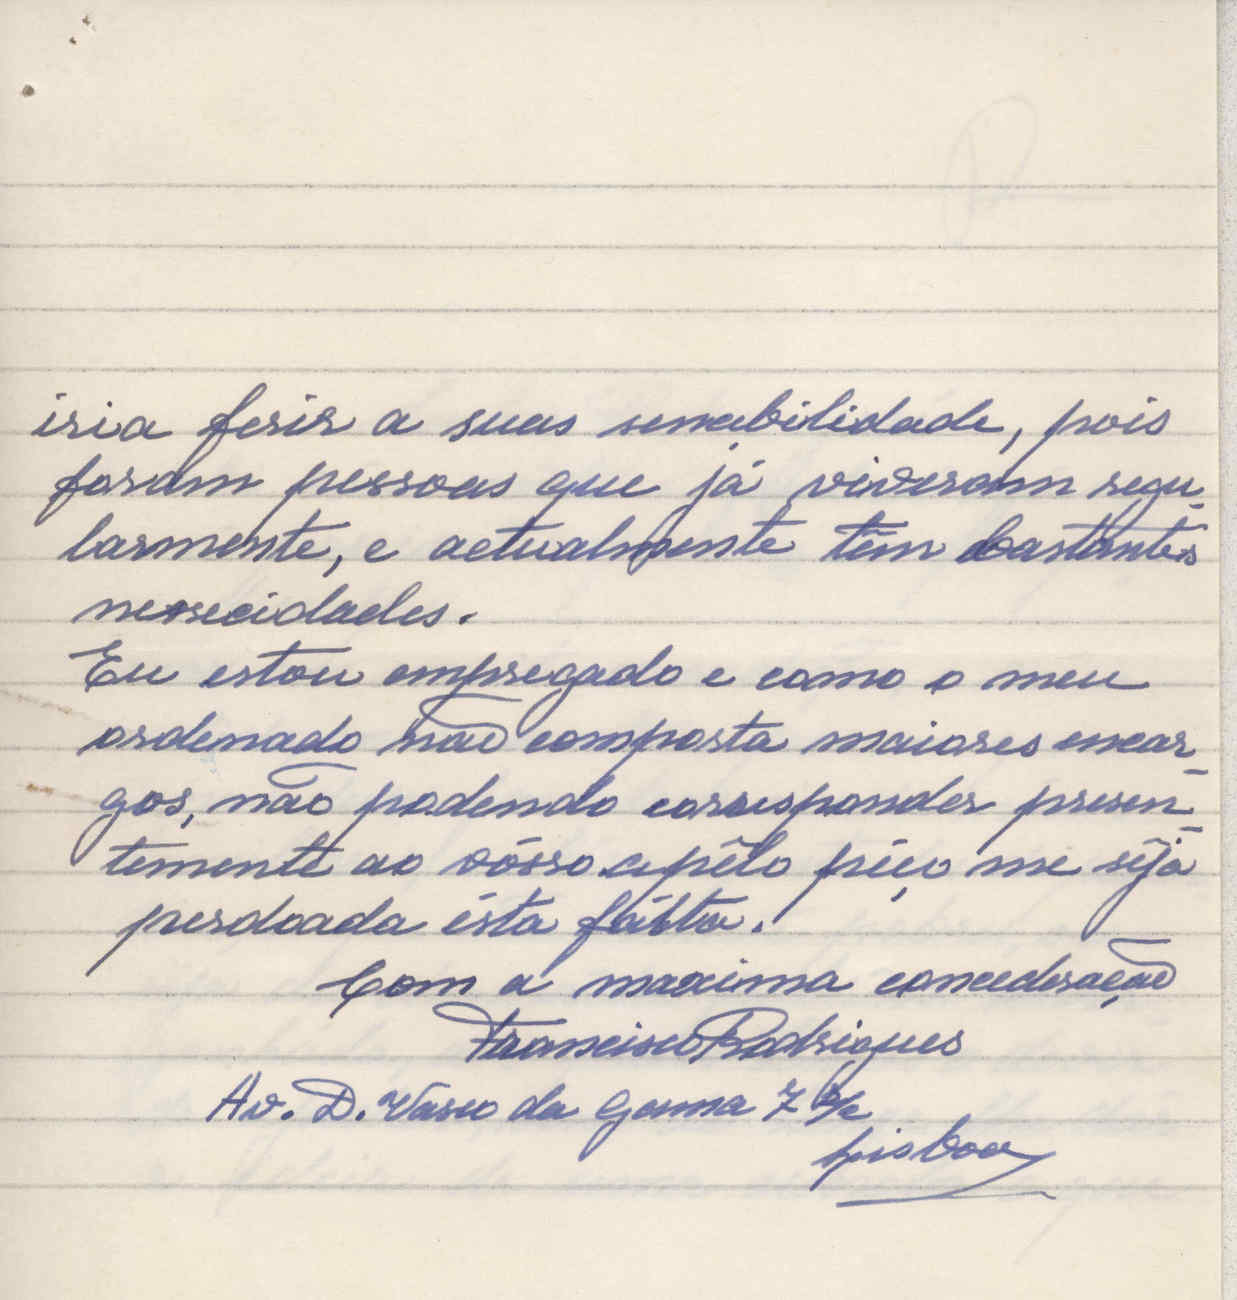 iria ferir a suas sensabilidade, pois
foram pessoas que já viveram regu-
larmente, e actualmente têm bastantes
nessecidades.
Eu estou empregado e como o meu
ordenado não comporta maiores encar-
gos, não podendo corresponder presen-
temente ao vósso apêlo péço me sêja
perdoada ésta fálta.
Com a maxima concederação
Francisco Rodrigues
Av. D. Vasco da Gama 7
Lisboa